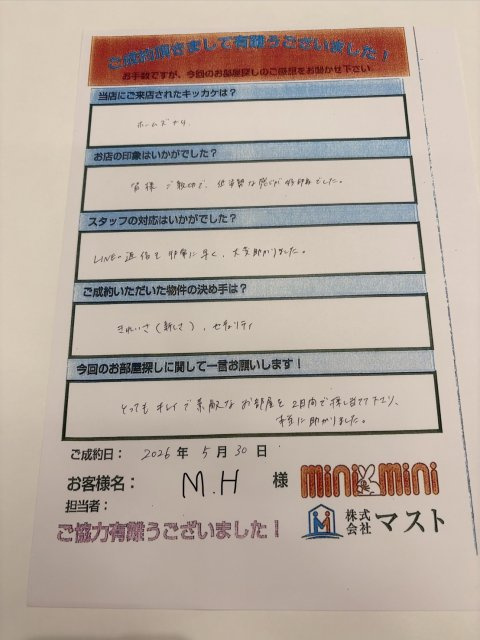 ご成約頂きまして有難うございました!
お手数ですが、今回のお部屋探しのご感想をお聞かせ下さい。
当店にご来店されたキッカケは?
ホームズより
お店の印象はいかがでした?
皆様ご親切で、
な感じが好印象でした。
スタッフの対応はいかがでした?
LINEの返信も非常に早く、大変助かりました。
ご成約いただいた物件の決め手は?
きれいさ(新しさ)、セキュリティ
今回のお部屋探しに関して一言お願いします!
とってもキレイで素敵なお部屋を2日間で探し当てて下さり、
本当に助かりました。
ご成約日: 2026年 5月 30日
お客様名: M.H 様
mini mini
担当者:
株式会社 マスト
ご協力有難うございました!